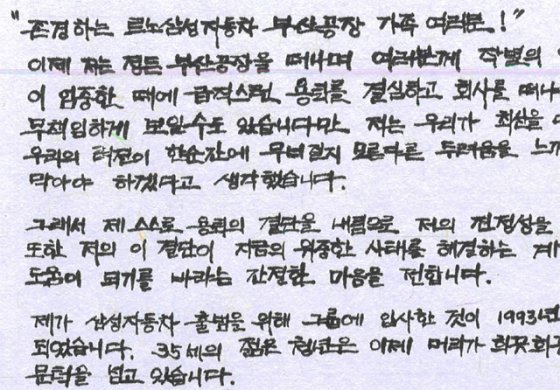 "존경하는 르노삼성자동차 부산공장 가족 여러분!"
이제 저는 정든 부산공장을 떠나며 여러분께 작별의
이 엄중한 때에 급작스런 용퇴를 결심하고 회사를 떠나
무책임하게 보일수도 있습니다만 저는 우리가 최선을
우리의 터전이 한순간에 무너질지 모른다른 두려움을 느끼
막아야 하겠다고 생각했습니다.
그래서 제 스스로 용퇴의 결단을 내림으로 저의 진정성을
또한 저의 이 결단이 지금의 위중한 사태를 해결하는 계
도움이 되기를 바라는 간절한 마음을 전합니다.
제가 삼성자동차 출범을 위해 그룹에 입사한 것이 1993년
되었습니다. 35세의 젊은 청년은 이제 머리가 희끗희끗
문턱을 넘고 있습니다.